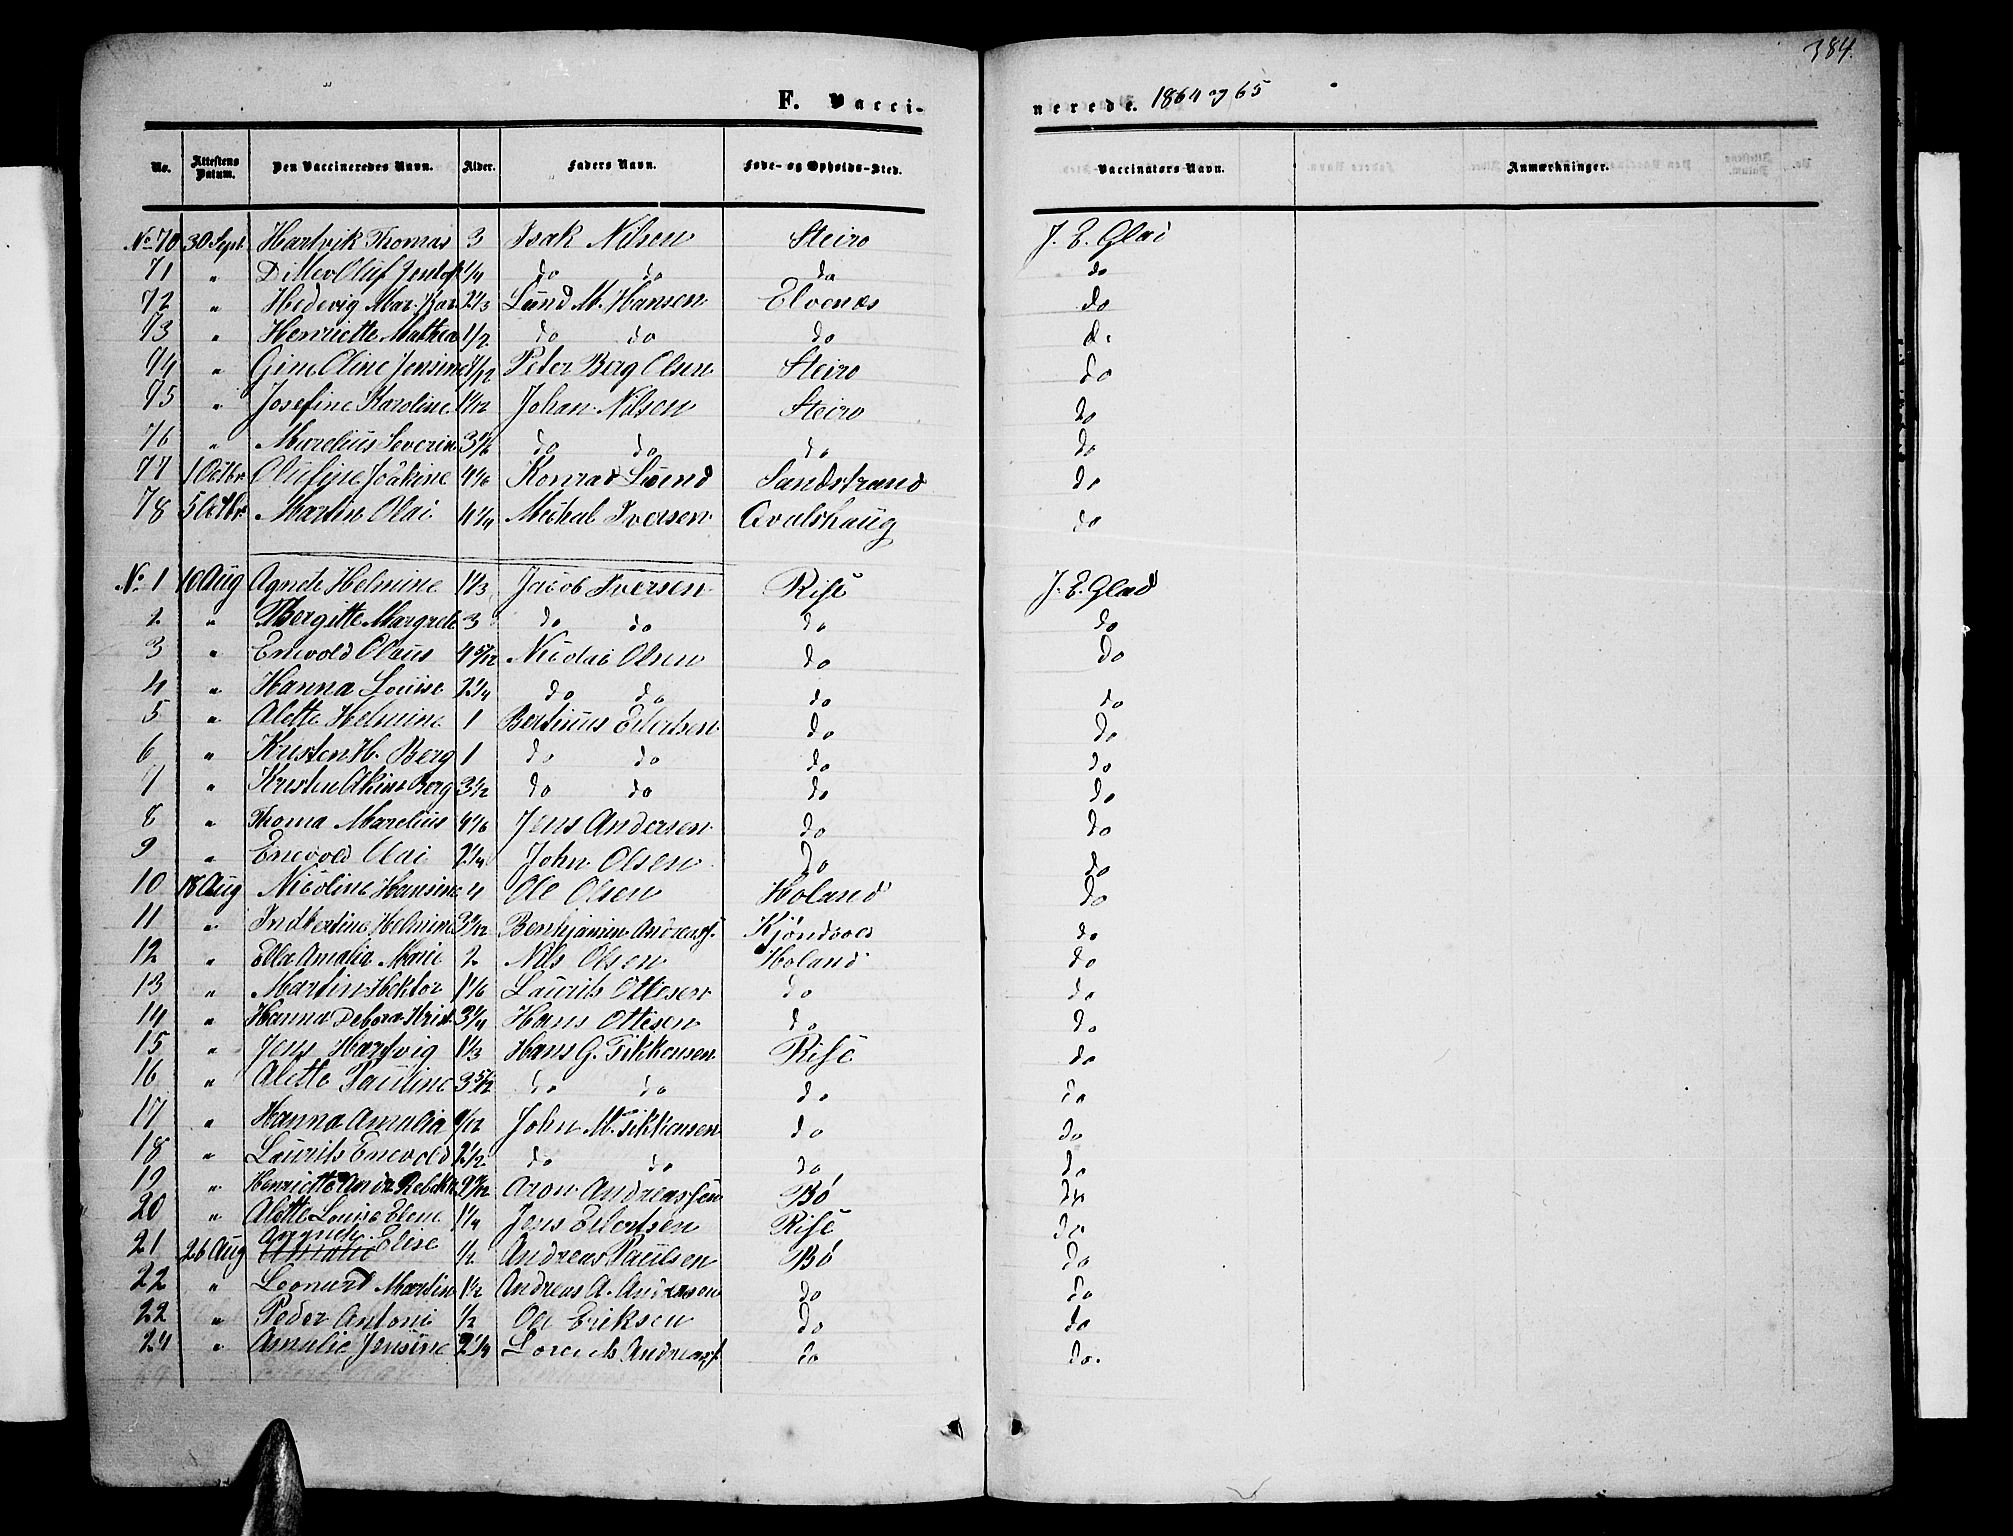 384.
F. Vacci-
nerede. 1864 og 65
No. Attestens Datum. Den Vaccineredes Navn. Alder. Faders Navn. Føde- og Opholds-Sted. Vaccinatørs Navn. Anmærkninger.
No 70 30 Sept. Hartvik Thomas 3 Isak Nilsen Steiro J. E. Glad
71 " Ditlev Oluf 1/4 do do do do
72 " Hedevig Mar. Kar. 2 1/3 Lund M. Hansen Elvenes do
73 " Henriette Mathea 1/2 do do do do
74 " Gine Oline Jensine Peter Berg Olsen Steiro do
75 " Josefine Karoline Johan Nilsen Steiro do
76 " Marelius Severin do do do do
77 1 Octbr. Olufine Joakine 4 1/6 Konrad Svend Sandstrand do
78 5 Octbr. Martin Olai 4 1/4 Michal Iversen Avalshaug do
No. 1 10 Aug Agnete Helmine 1 1/3 Jacob Iversen Risé J. E. Glad
2 " Bergitte Margrete 3 do do do do
3 " Enevold Olaus 4 5/12 Nicolai Olsen do do
4 " Hanna Louise 2 1/4 do do do do
5 " Alette Helmine 1 Bertinus Eilertsen do do
6 " Kristen H. Berg 1 do do do do
7 " Kristen Berg 3 1/2 do do do do
8 " Thoma Marelius 4 1/6 Jens Andersen do do
9 " Enevold Olai 2 1/4 John Olsen do do
10 18 Aug Nicoline Hansine 4 Ole Olsen Holand do
11 " Indbertine Helmine Benhjamin Andreass. Kjøndnæs do
12 " Ella Amalia Marie 2 Nils Olsen Holand do
13 " Martin Hektor 1 1/6 Laurits Ottesen do do
14 " Hanna Debora Krist. 3 1/4 Hans Ottesen do do
15 " Jens Hartvig 1 1/3 Hans G. Fikkensen Risé do
16 " Alette Pauline 3 5/12 do do do do
17 " Hanna Amalia 9/12 John M. Fikkensen do do
18 " Laurits Enevold 2 1/2 do do do do
19 " Henriette Rebekka Aron Andreassen Bø do
20 " Alette Louise Elene 1 1/4 Jens Eilertsen Risé do
21 26 Aug Elise 1/2 Andreas Paulsen Bø do
22 " Leonard Martin 1 1/2 Andreas A. Andersen do do
22 " Peder Antoni 1/2 Ole Eriksen do do
24 " Amalie Jensine 2 1/4 Lorents Andreass. do do.